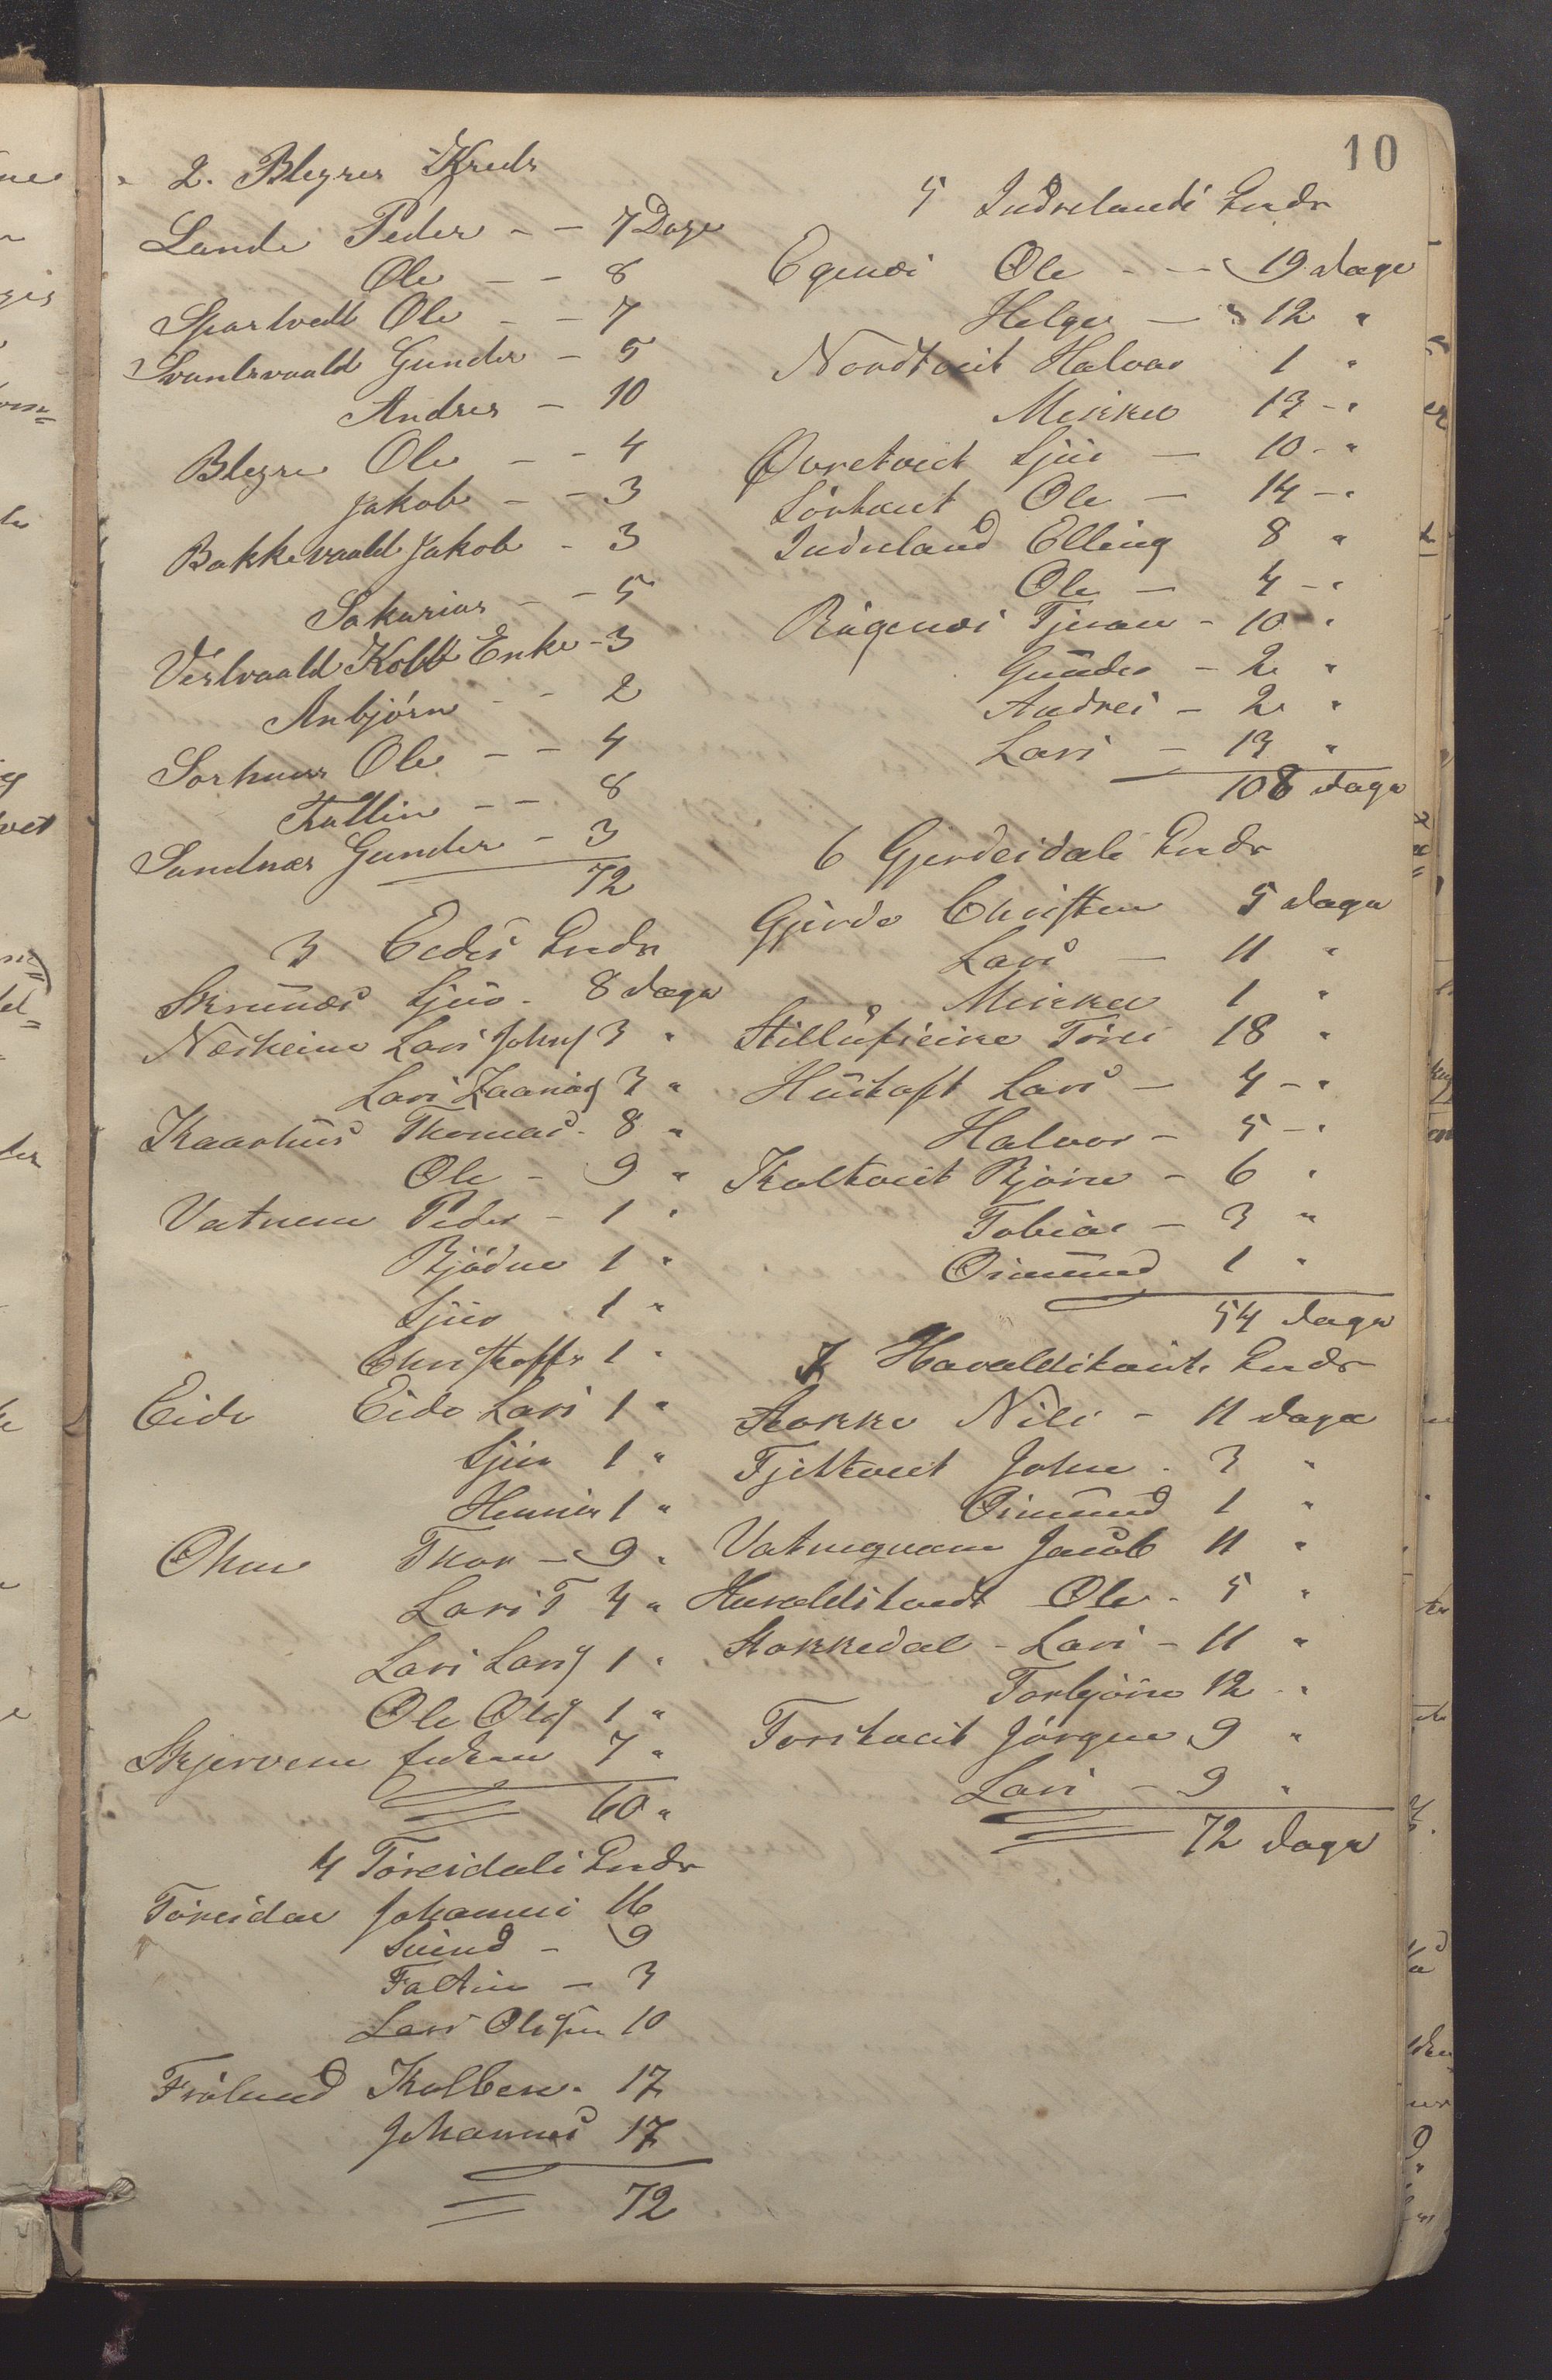 10
2. Blegres Kreds
Lande Peder - - 7 Dage
Ole - - 8
Spartvedt Ole - - 7
Svantsvaald Gunder - 5
Andres - 10
Blegre Ole - - 4
Jakob - - 3
Bakkevaald Jakob - 3
Sakarias - - 5
Vestvaald Kolb Enke - 3
Anbjörn - - 2
Sørhuus Ole - - 4
Faltin - - 8
Sandnæs Gunder - 3
72
3 Eides Kreds
Skrunes Sjur - 8 dage
Næsheim Lars Johns 3 "
Lars Zaarias 3 "
Kaarhus Thomas - 8 "
Ole - 9 "
Vatnem Peder - 1 "
Bjödne 1 "
Sjur 1 "
Christoffr 1 "
Eide Eide Lars 1 "
Sjur 1 "
Henrik 1 "
Ohm Thor - 9 "
Lars T 4 "
Lars Lars 1 "
Ole Ols 1 "
Skjervem 7 "
60 "
4 Töresdals Kreds
Töresdal Johannes 16
Sivind - 9
Faltin - 3
Lars Olsen 10
Fröland Kolben - 17
Johannes 17
72
5 Indrelands Kreds
Egenæs Ole - - 19 dage
Helge - 12 "
Nordtveit Halvor 1 "
Mikkel 13 - "
Øvretveit Sjur - 10 - "
Sörtveit Ole - 14 - "
Indreland Elling 8 "
Ole - 4 - "
Rágenæs Tjeran - 10 "
Gunder - 2 "
Andreas - 2 "
Lars - 13 "
108 dage
6 Gjerdesdals Kreds
Gjerde Christen 5 dage
Lars - 11 "
Mikkel 1 "
Stillufseike Töres 18 "
Hustoft Lars - 4 - "
Halvor - 5 - "
Kaltveit Bjørn - 6 "
Tobias - 3 "
Osmund 1 "
54 dage
7 Haraldstveits Kreds
Stokke Nils - 11 dage
Fjeltveit John - 3 "
Osmund 1 "
Vatnequam Jacob 11 "
Haraldstvedt Ole - 5 "
Stokkedal - Lars - 11 "
Torbjörn 12 - "
Torstveit Jörgen 9 "
Lars - 9 "
72 dage